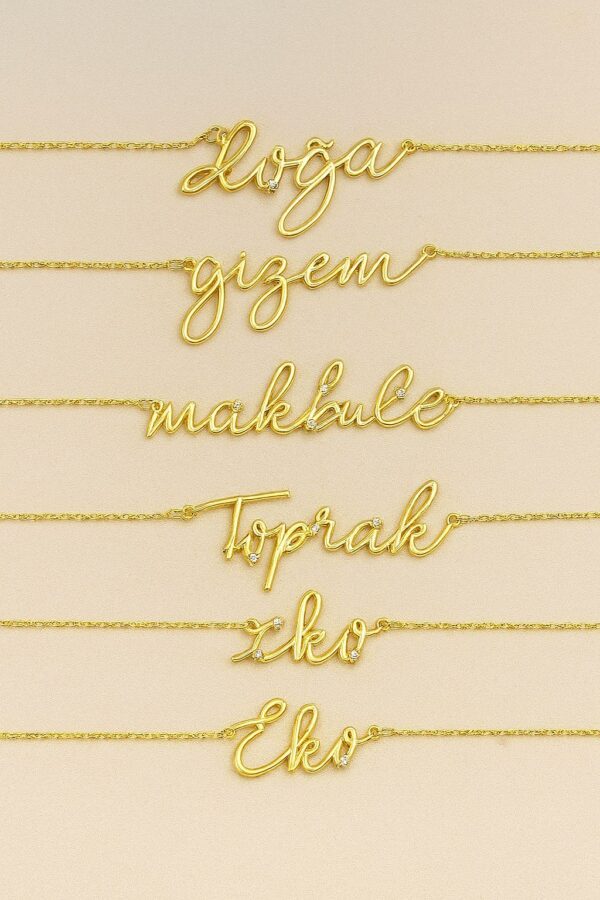 doğa
gizem
makbule
Toprak
eko
Eko